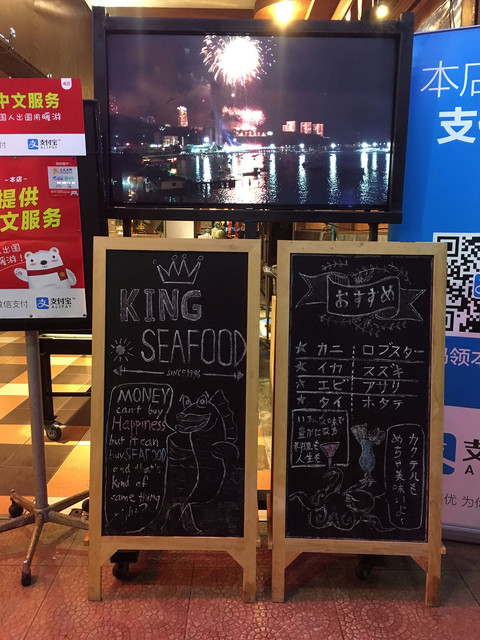 中文服务
国人出国用暖
付 支付宝
ALIPAY
-本店-
提供
文服务
微信支付 支付宝
ALIPAY
KING
SEAFOOD
SINCE 1996
MONEY
can't buy
Happiness
but it can
buy SEAFOOD
and that's
kind of
same thing
right?
おすすめ
★ カニ ロブスター
★ イカ スズキ
★ エビ アサリ
★ タイ ホタテ
いろんな味で
豊かになる
料理も
人生も
カクテルも
めちゃ美味いよ~
本店
支
领本
支
A
优 为你